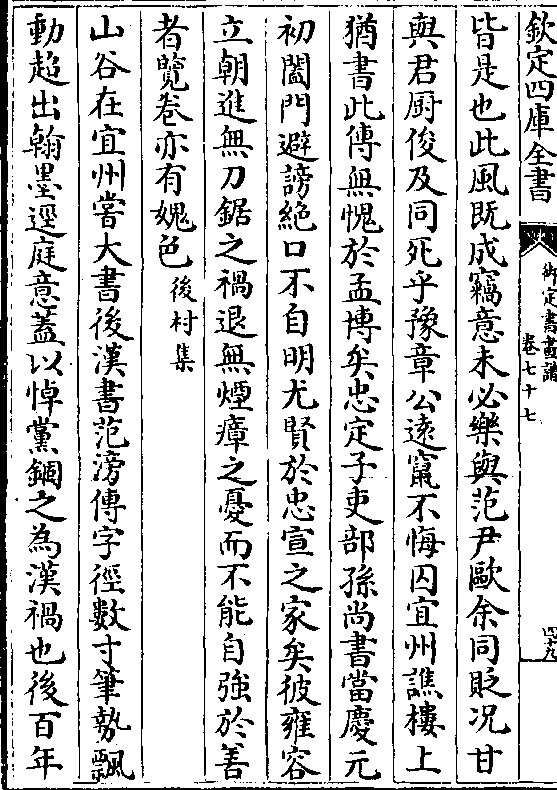 欽定四庫全書
御定書畫譜
卷七十七
四十九
皆是也此風既成竊意未必樂與范尹歐余同貶况甘
與君厨俊及同死乎豫章公遠竄不悔囚宜州譙樓上
猶書此傳無愧於孟博矣忠定子吏部孫尚書當慶元
初闔門避謗絶口不自明尤賢於忠宣之家矣彼雍容
立朝進無刀鋸之禍退無煙瘴之憂而不能自強於善
者覽卷亦有媿色後村集
山谷在宜州嘗大書後漢書范滂傳字徑數寸筆勢飄
動超出翰墨逕庭意蓋以悼黨錮之為漢禍也後百年